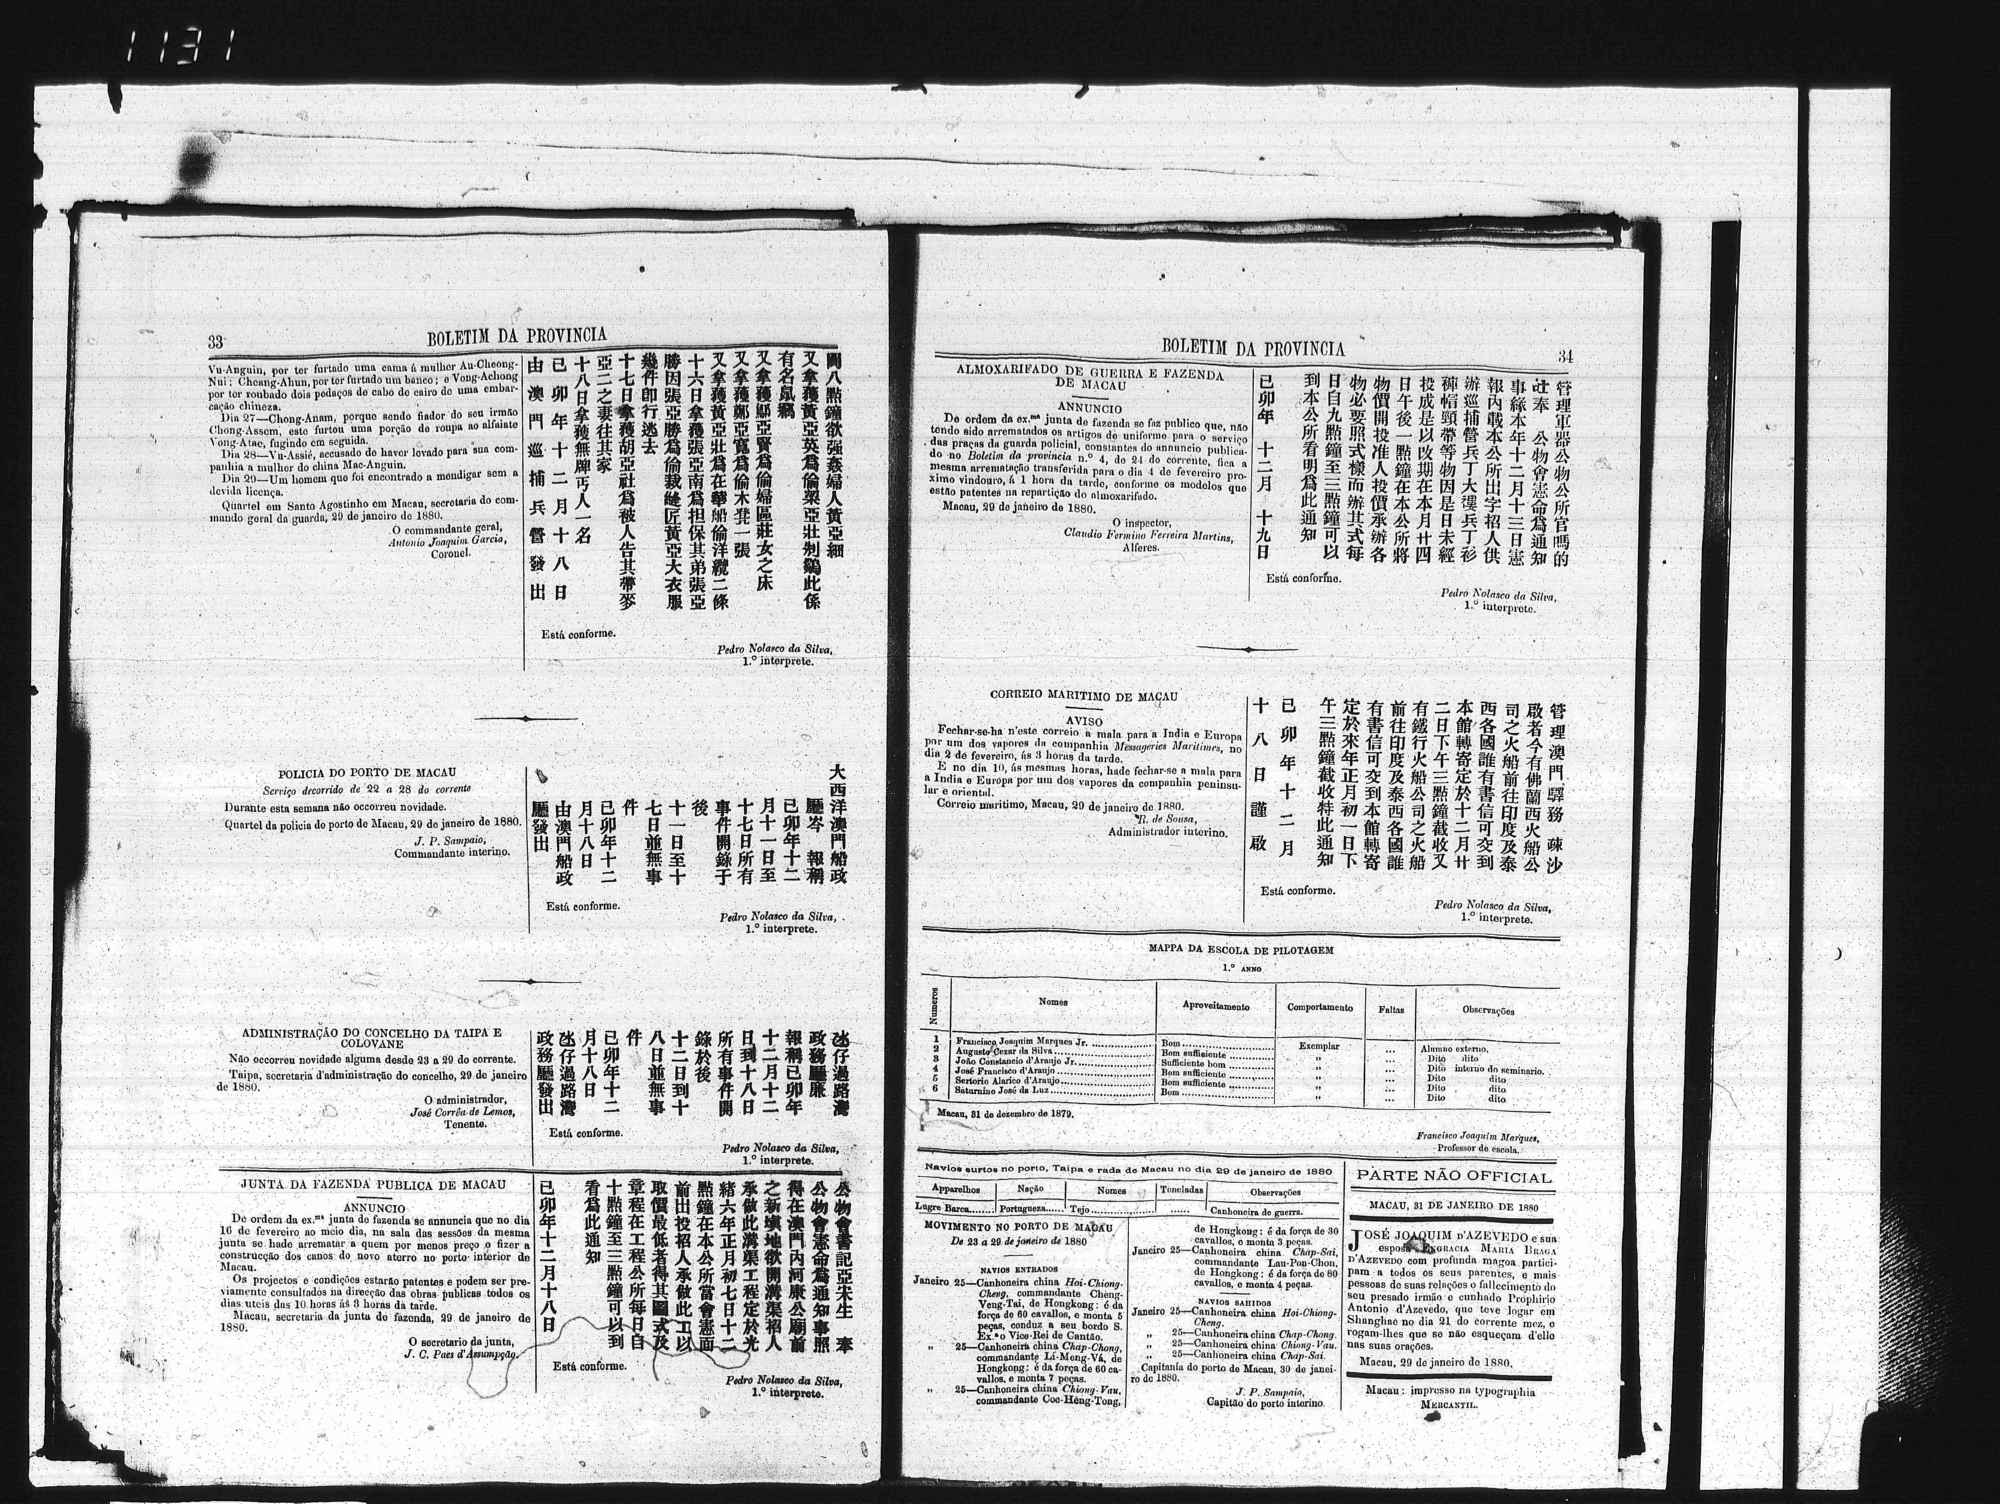 1131
33
BOLETIM DA PROVINCIA
Vu-Anguin, por ter furtado uma cama á mulher Au-Cheong-
Nui; Cheang-Ahun, por ter furtado um banco; e Vong-Achong
por ter roubado dois pedaços de cabo de cairo de uma embar-
cação chineza.
Dia 27—Chong-Anam, porque sendo fiador do seu irmão
Chong-Assem, este furtou uma porção de roupa ao alfaiate
Vong-Atac, fugindo em seguida.
Dia 28—Vu-Assié, accusado de haver levado para sua com-
panhia a mulher do china Mac-Anguin.
Dia 29—Um homem que foi encontrado a mendigar sem a
devida licença.
Quartel em Santo Agostinho em Macau, secretaria do com-
mando geral da guarda, 29 de janeiro de 1880.
O commandante geral,
Antonio Joaquim Garcia,
Coronel.
閘八點鐘欲强姦婦人黃亞細
又拿獲黃亞英爲偷梁亞壯刣鷄此係
有名鼠竊
又拿獲鄔亞賢爲偷婦區莊女之床
又拿獲鄭亞寬爲偷木凳一張
又拿獲黃亞壯爲在華船偷洋纜二條
十六日拿獲張亞南爲担保其弟張亞
勝因張亞勝爲偷裁縫匠黃亞大衣服
幾件卽行逃去
十七日拿獲胡亞社爲被人告其帶麥
亞二之妻往其家
十八日拿獲無牌丐人一名
己卯年十二月十八日
由澳門巡捕兵營發出
Está conforme.
Pedro Nolasco da Silva,
1.º interprete.
POLICIA DO PORTO DE MACAU
Serviço decorrido de 22 a 28 do corrente
Durante esta semana não occorreu novidade.
Quartel da policia do porto de Macau, 29 de janeiro de 1880.
J. P. Sampaio,
Commandante interino.
大西洋澳門船政
廳岑 報稱
己卯年十二
月十一日至
十七日所有
事件開錄于
後
十一日至十
七日並無事
件
己卯年十二
月十八日
由澳門船政
廳發出
Está conforme.
Pedro Nolasco da Silva,
1.º interprete.
ADMINISTRAÇÃO DO CONCELHO DA TAIPA E
COLOVANE
Não occorreu novidade alguma desde 23 a 29 do corrente.
Taipa, secretaria d'administração do concelho, 29 de janeiro
de 1880.
O administrador,
José Corrêa de Lemos,
Tenente.
氹仔過路灣
政務廳廉
報稱己卯年
十二月十二
日到十八日
所有事件開
錄於後
十二日到十
八日並無事
件
己卯年十二
月十八日
氹仔過路灣
政務廳發出
Está conforme.
Pedro Nolasco da Silva,
1.º interprete.
JUNTA DA FAZENDA PUBLICA DE MACAU
ANNUNCIO
De ordem da ex.ma junta de fazenda se annuncia que no dia
16 de fevereiro ao meio dia, na sala das sessões da mesma
junta se hade arrematar a quem por menos preço o fizer a
construcção dos canos do novo aterro no porto interior de
Macau.
Os projectos e condições estarão patentes e podem ser pre-
viamente consultados na direcção das obras publicas todos os
dias uteis das 10 horas ás 3 horas da tarde.
Macau, secretaria da junta de fazenda, 29 de janeiro de
1880.
O secretario da junta,
J. C. Paes d'Assumpção.
公物會書記亞宋生 奉
公物會憲命爲通知事照
得在澳門內河康公廟前
之新塡地欲開溝渠招人
承做此溝渠工程定於光
緒六年正月初七日十二
點鐘在本公所當會憲面
前出投招人承做此工以
取價最低者得其圖式及
章程在工程公所每日自
十點鐘至三點鐘可以到
看爲此通知
己卯年十二月十八日
Está conforme.
Pedro Nolasco da Silva,
1.º interprete.
BOLETIM DA PROVINCIA
34
ALMOXARIFADO DE GUERRA E FAZENDA
DE MACAU
ANNUNCIO
De ordem da ex.ma junta de fazenda se faz publico que, não
tendo sido arrematados os artigos de uniforme para o serviço
das praças da guarda policial, constantes do annuncio publica-
do no Boletim da provincia n.º 4, de 24 do corrente, fica a
mesma arrematação transferida para o dia 4 de fevereiro pro-
ximo vindouro, á 1 hora da tarde, conforme os modelos que
estão patentes na repartição do almoxarifado.
Macau, 29 de janeiro de 1880.
O inspector,
Claudio Fermino Ferreira Martins,
Alferes.
管理軍器公物公所官嗎的
吐奉 公物會憲命爲通知
事緣本年十二月十三日憲
報內載本公所出字招人供
辦巡捕營兵丁大褸兵丁衫
褲帽頸帶等物因是日未經
投成是以改期在本月廿四
日午後一點鐘在本公所將
物價開投准人投價承辦各
物必要照式樣而辦其式每
日自九點鐘至三點鐘可以
到本公所看明爲此通知
己卯年 十二月 十九日
Está conforme.
Pedro Nolasco da Silva,
1.º interprete.
CORREIO MARITIMO DE MACAU
AVISO
Fechar-se-ha n'este correio a mala para a India e Europa
por um dos vapores da companhia Messageries Maritimes, no
dia 2 de fevereiro, ás 3 horas da tarde.
E no dia 10, ás mesmas horas, hade fechar-se a mala para
a India e Europa por um dos vapores da companhia peninsu-
lar e oriental.
Correio maritimo, Macau, 29 de janeiro de 1880.
R. de Sousa,
Administrador interino.
管理澳門驛務 疎沙
啟者今有佛蘭西火船公
司之火船前往印度及泰
西各國誰有書信可交到
本館轉寄定於十二月廿
二日下午三點鐘截收又
有鐵行火船公司之火船
前往印度及泰西各國誰
有書信可交到本館轉寄
定於來年正月初一日下
午三點鐘截收特此通知
己卯年十二月
十八日謹啟
Está conforme.
Pedro Nolasco da Silva,
1.º interprete.
MAPPA DA ESCOLA DE PILOTAGEM
1.º ANNO
Numeros Nomes Aproveitamento Comportamento Faltas Observações
1 Francisco Joaquim Marques Jr. Bom Exemplar ... Alumno externo.
2 Augusto Cezar da Silva Bom sufficiente „ ... Dito dito
3 João Constancio d'Araujo Jr. Sufficiente bom „ ... Dito interno do seminario.
4 José Francisco d'Araujo Bom sufficiente „ ... Dito dito
5 Sertorio Alarico d'Araujo Bom sufficiente „ ... Dito dito
6 Saturnino José da Luz Bom „ ... Dito dito
Macau, 31 de dezembro de 1879.
Francisco Joaquim Marques,
Professor da escola.
Navios surtos no porto, Taipa e rada de Macau no dia 29 de janeiro de 1880
Apparelhos Nação Nomes Toneladas Observações
Lugre Barca Portugueza Tejo ...... Canhoneira de guerra.
MOVIMENTO NO PORTO DE MACAU
De 23 a 29 de janeiro de 1880
NAVIOS ENTRADOS
Janeiro 25—Canhoneira china Hoi-Chiong-
Cheng, commandante Cheng-
Veng-Tai, de Hongkong: é da
força de 60 cavallos, e monta 5
peças, conduz a seu bordo S.
Ex.ª o Vice-Rei de Cantão.
„ 25—Canhoneira china Chap-Chong,
commandante Li-Meng-Vá, de
Hongkong: é da força de 60 ca-
vallos, e monta 7 peças.
„ 25—Canhoneira china Chiong-Vau,
commandante Coc-Heng-Tong,
de Hongkong: é da força de 30
cavallos, e monta 3 peças.
Janeiro 25—Canhoneira china Chap-Sai,
commandante Lau-Pon-Chon,
de Hongkong: é da força de 80
cavallos, e monta 4 peças.
NAVIOS SAHIDOS
Janeiro 25—Canhoneira china Hoi-Chiong-
Cheng.
„ 25—Canhoneira china Chap-Chong.
„ 25—Canhoneira china Chiong-Vau.
„ 25—Canhoneira china Chap-Sai.
Capitania do porto de Macau, 30 de janei-
ro de 1880.
J. P. Sampaio,
Capitão do porto interino.
PARTE NÃO OFFICIAL
MACAU, 31 DE JANEIRO DE 1880
JOSÉ JOAQUIM D'AZEVEDO e sua
esposa ENGRACIA MARIA BRAGA
D'AZEVEDO com profunda magoa partici-
pam a todos os seus parentes, e mais
pessoas de suas relações o fallecimento do
seu presado irmão e cunhado Prophirio
Antonio d'Azevedo, que teve logar em
Shanghae no dia 21 do corrente mez, e
rogam-lhes que se não esqueçam d'elle
nas suas orações.
Macau, 29 de janeiro de 1880.
Macau: impresso na typographia
MERCANTIL.